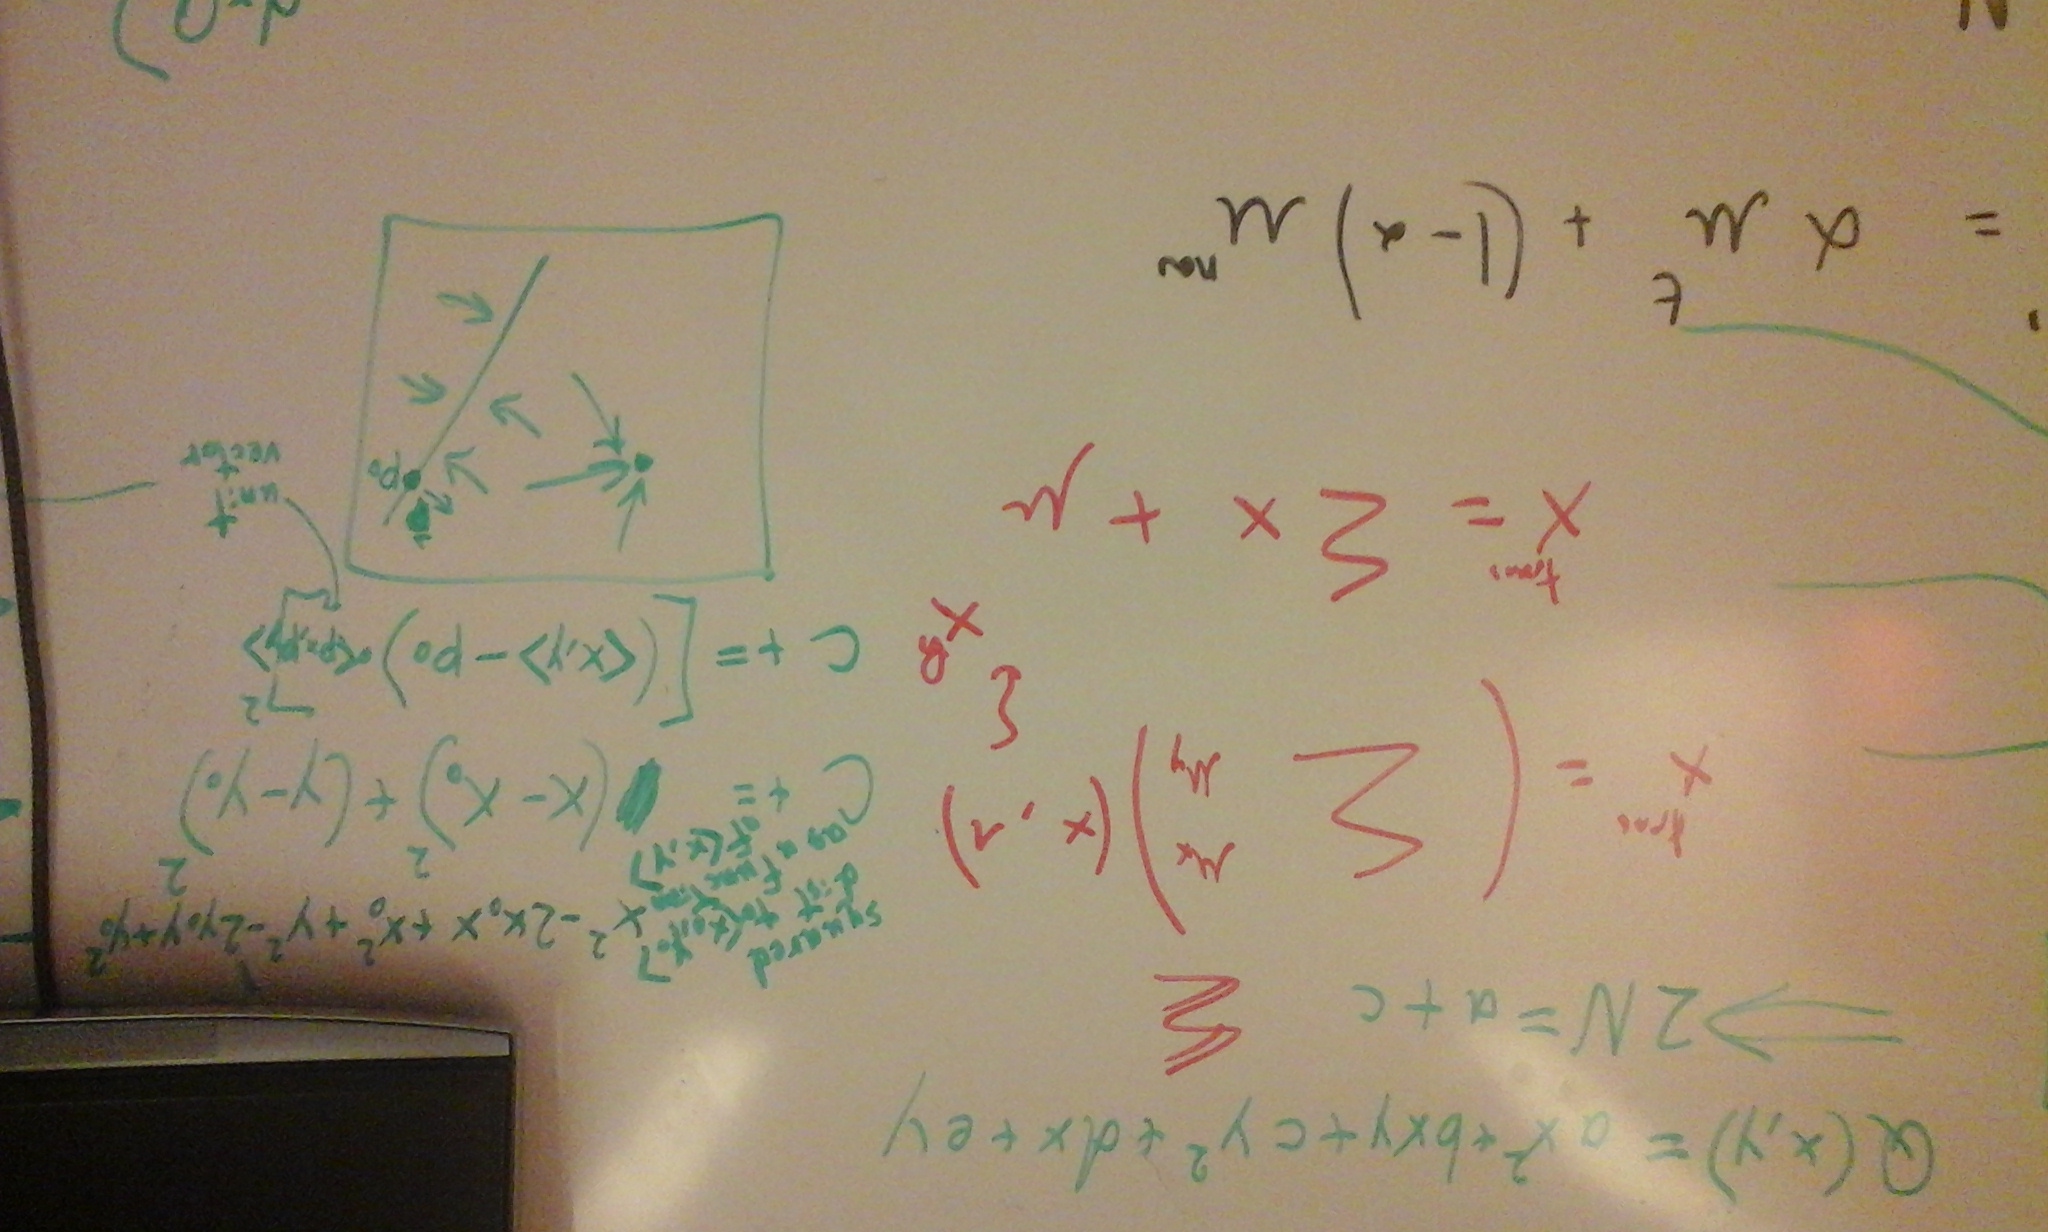 Q(x,y) = ax² + bxy + cy² + dx + ey
⟹ 2N = a + c Σ
x^trans = ( Σ μx μy ) (x, 1)
x^h
x^trans = Σ x + μ
= α μ^t + (1 - α) μ^new
squared
dist to (x₀,y₀)
as a function
of (x,y)
x² - 2x₀x + x₀² + y² - 2y₀y + y₀²
C += (x - x₀)² + (y - y₀)²
C += [(<x,y> - p₀) • <px,py>]²
unit
vector
p⃗
p₀
N